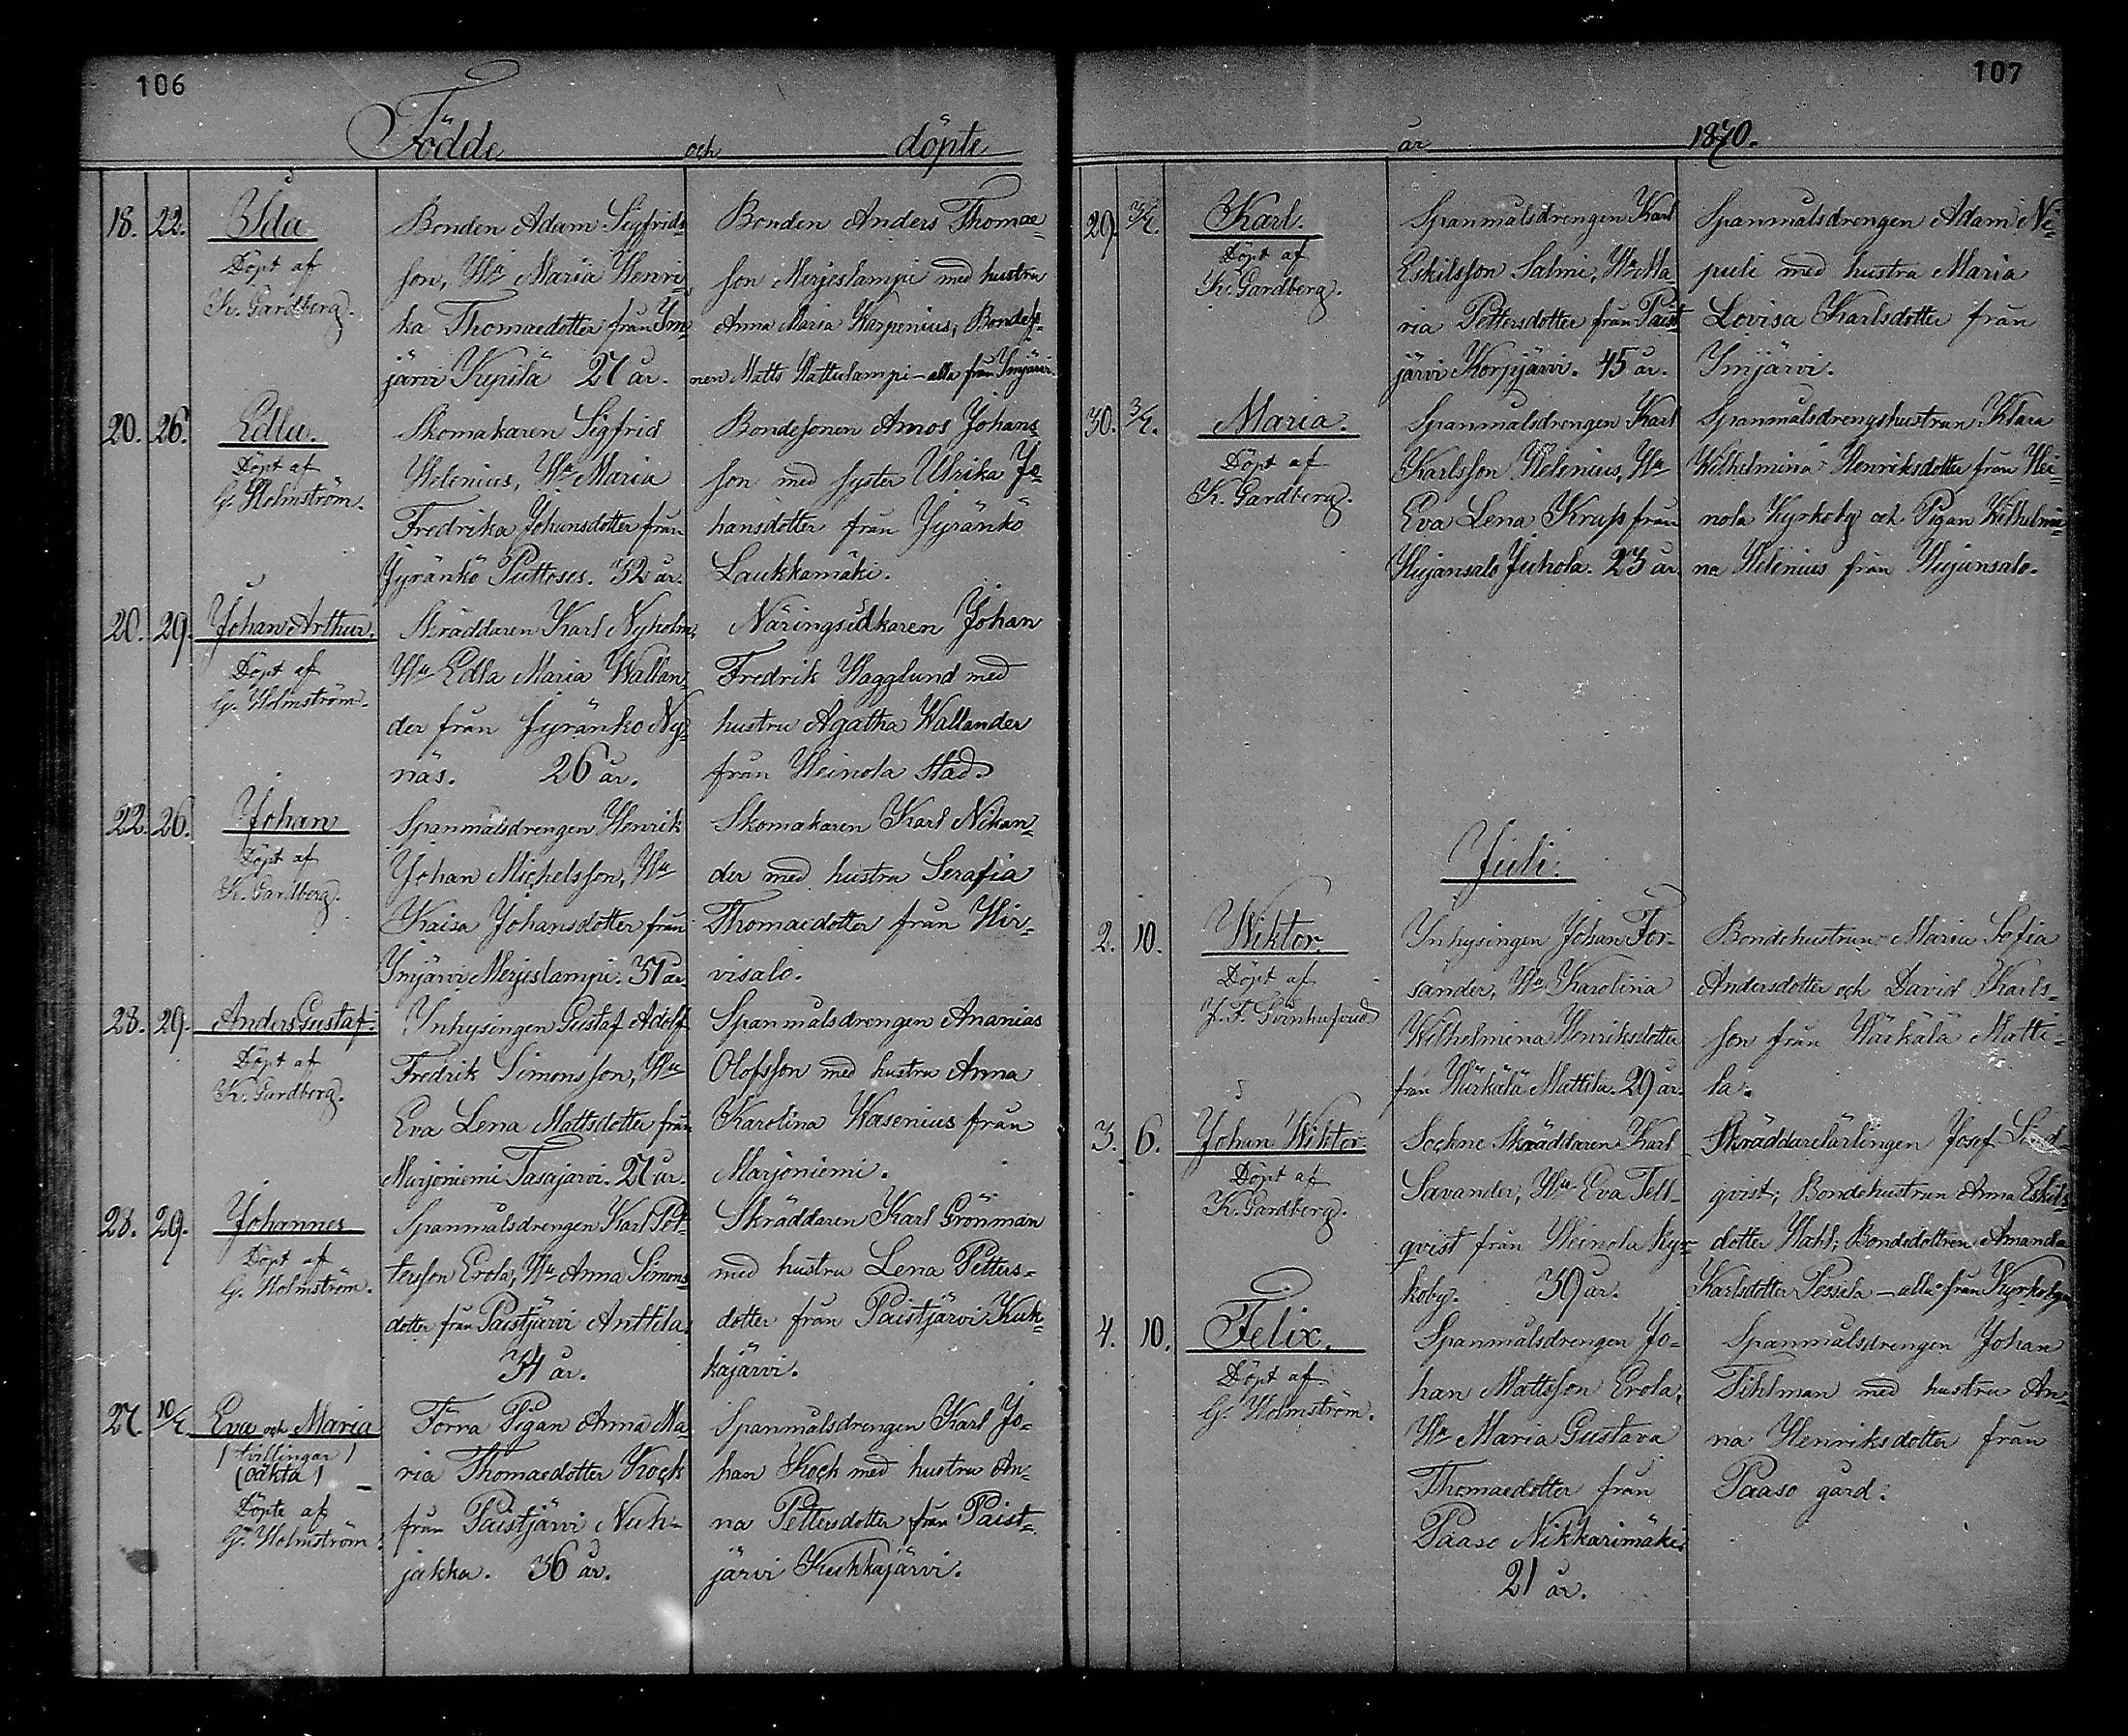 106
Födde och döpte
18. 22. Ida
Döpt af
K. Gardberg.
Bonden Adam Sigfrids
son, Hu Maria Henri
ka Thomaedotter från Im
järvi Kyrilä 27 år.
Bonden Anders Thomae
son Merjeslampi med hustru
Anna Maria Karpenius, Bondes
nen Matts Hattulampi - alla från Imjärvi.
20. 26. Edla.
Döpt af
G. Holmström.
Skomakaren Sigfrid
Helenius, Hu Maria
Fredrika Johansdotter från
Jyränkö Puttoses. 32 år.
Bondesonen Amos Johans
son med syster Ulrika Jo
hansdotter från Jyränkö
Laukkamäki.
20. 29. Johan Arthur.
Döpt af
G. Holmström.
Skräddaren Karl Nyholm,
Hu Edla Maria Wallan
der från Jyränkö Ny
näs. 26 år.
Näringsidkaren Johan
Fredrik Hagglund med
hustru Agatha Wallander
från Heinola Stad.
22. 26. Johan
Döpt af
K. Gardberg.
Spanmålsdrengen Henrik
Johan Michelsson, Hu
Kaisa Johansdotter från
Imjärvi Merjeslampi. 37 år
Skomakaren Karl Nikan
der med hustru Serafia
Thomaedotter från Hir
visalo.
28. 29. Anders Gustaf.
Döpt af
K. Gardberg.
Inhysingen Gustaf Adolf
Fredrik Simonsson, Hu
Eva Lena Mattsdotter från
Marjoniemi Tasajarvi. 27 år.
Spanmålsdrengen Ananias
Olofsson med hustru Anna
Karolina Wasenius från
Marjoniemi.
28. 29. Johannes
Döpt af
G. Holmström.
Spanmålsdrengen Karl Pet
tersson Erola, Hu Anna Simons
dotter från Paistjärvi Anttila.
34 år.
Skräddaren Karl Grönman
med hustru Lena Petters=
dotter från Paistjärvi Kuk
kajärvi.
27. 10/7. Eva och Maria
(tvillingar)
(oäkta)
Döpte af
G. Holmström.
Förra Pigan Anna Ma
ria Thomaedotter Kock
från Paistjärvi Nuh-
jakka. 36 år.
Spanmålsdrengen Karl Jo=
han Kock med hustru An=
na Pettersdotter från Paist=
järvi Kukkajärvi.
107
år 1870.
29. 3/7. Karl.
Döpt af
K. Gardberg.
Spanmålsdrengen Karl
Eskilsson Salmi, Hu Ma
ria Pettersdotter från Paist
järvi Korpjärvi. 45 år.
Spanmålsdrengen Adam Ne=
puli med hustru Maria
Lovisa Karlsdotter från
Imjärvi.
30. 3/7. Maria.
Döpt af
K. Gardberg.
Spanmålsdrengen Karl
Karlsson Helenius, Hu
Eva Lena Krufs från
Hujansalo Juhola. 23 år
Spanmålsdrengshustrun Klara
Wilhelmina Henriksdotter från Hei
nola Kyrkoby och Pigan Wilhelmi
na Helenius från Hujansalo.
Juli.
2. 10. Wiktor.
Döpt af
Inhysingen Johan For-
sander, Hu Karolina
Wilhelmina Henriksdotter
från Härkälä Mattila. 29 år.
Bondehustrun Maria Sofia
Andersdotter och David Karls=
son från Härkälä Matti=
la.
3. 6. Johan Wiktor.
Döpt af
K. Gardberg.
Sockne Skräddaren Karl
Savander, Hu Eva Tell-
qvist från Heinola Kyr
koby. 39 år.
Skräddarelärlingen Josef
qvist, Bondehustrun Anna Eskils
dotter Wahl, Bondedottren Amanda
Karlsdotter Pessila - alla från Kyrkobyn
4. 10. Felix.
Döpt af
G. Holmström.
Spanmålsdrengen Jo=
han Mattsson Erola,
Hu Maria Gustava
Thomaedotter från
Paaso Nikkarimäki
21 år.
Spanmålsdrengen Johan
Tihlman med hustru An=
na Henriksdotter från
Paaso gård.